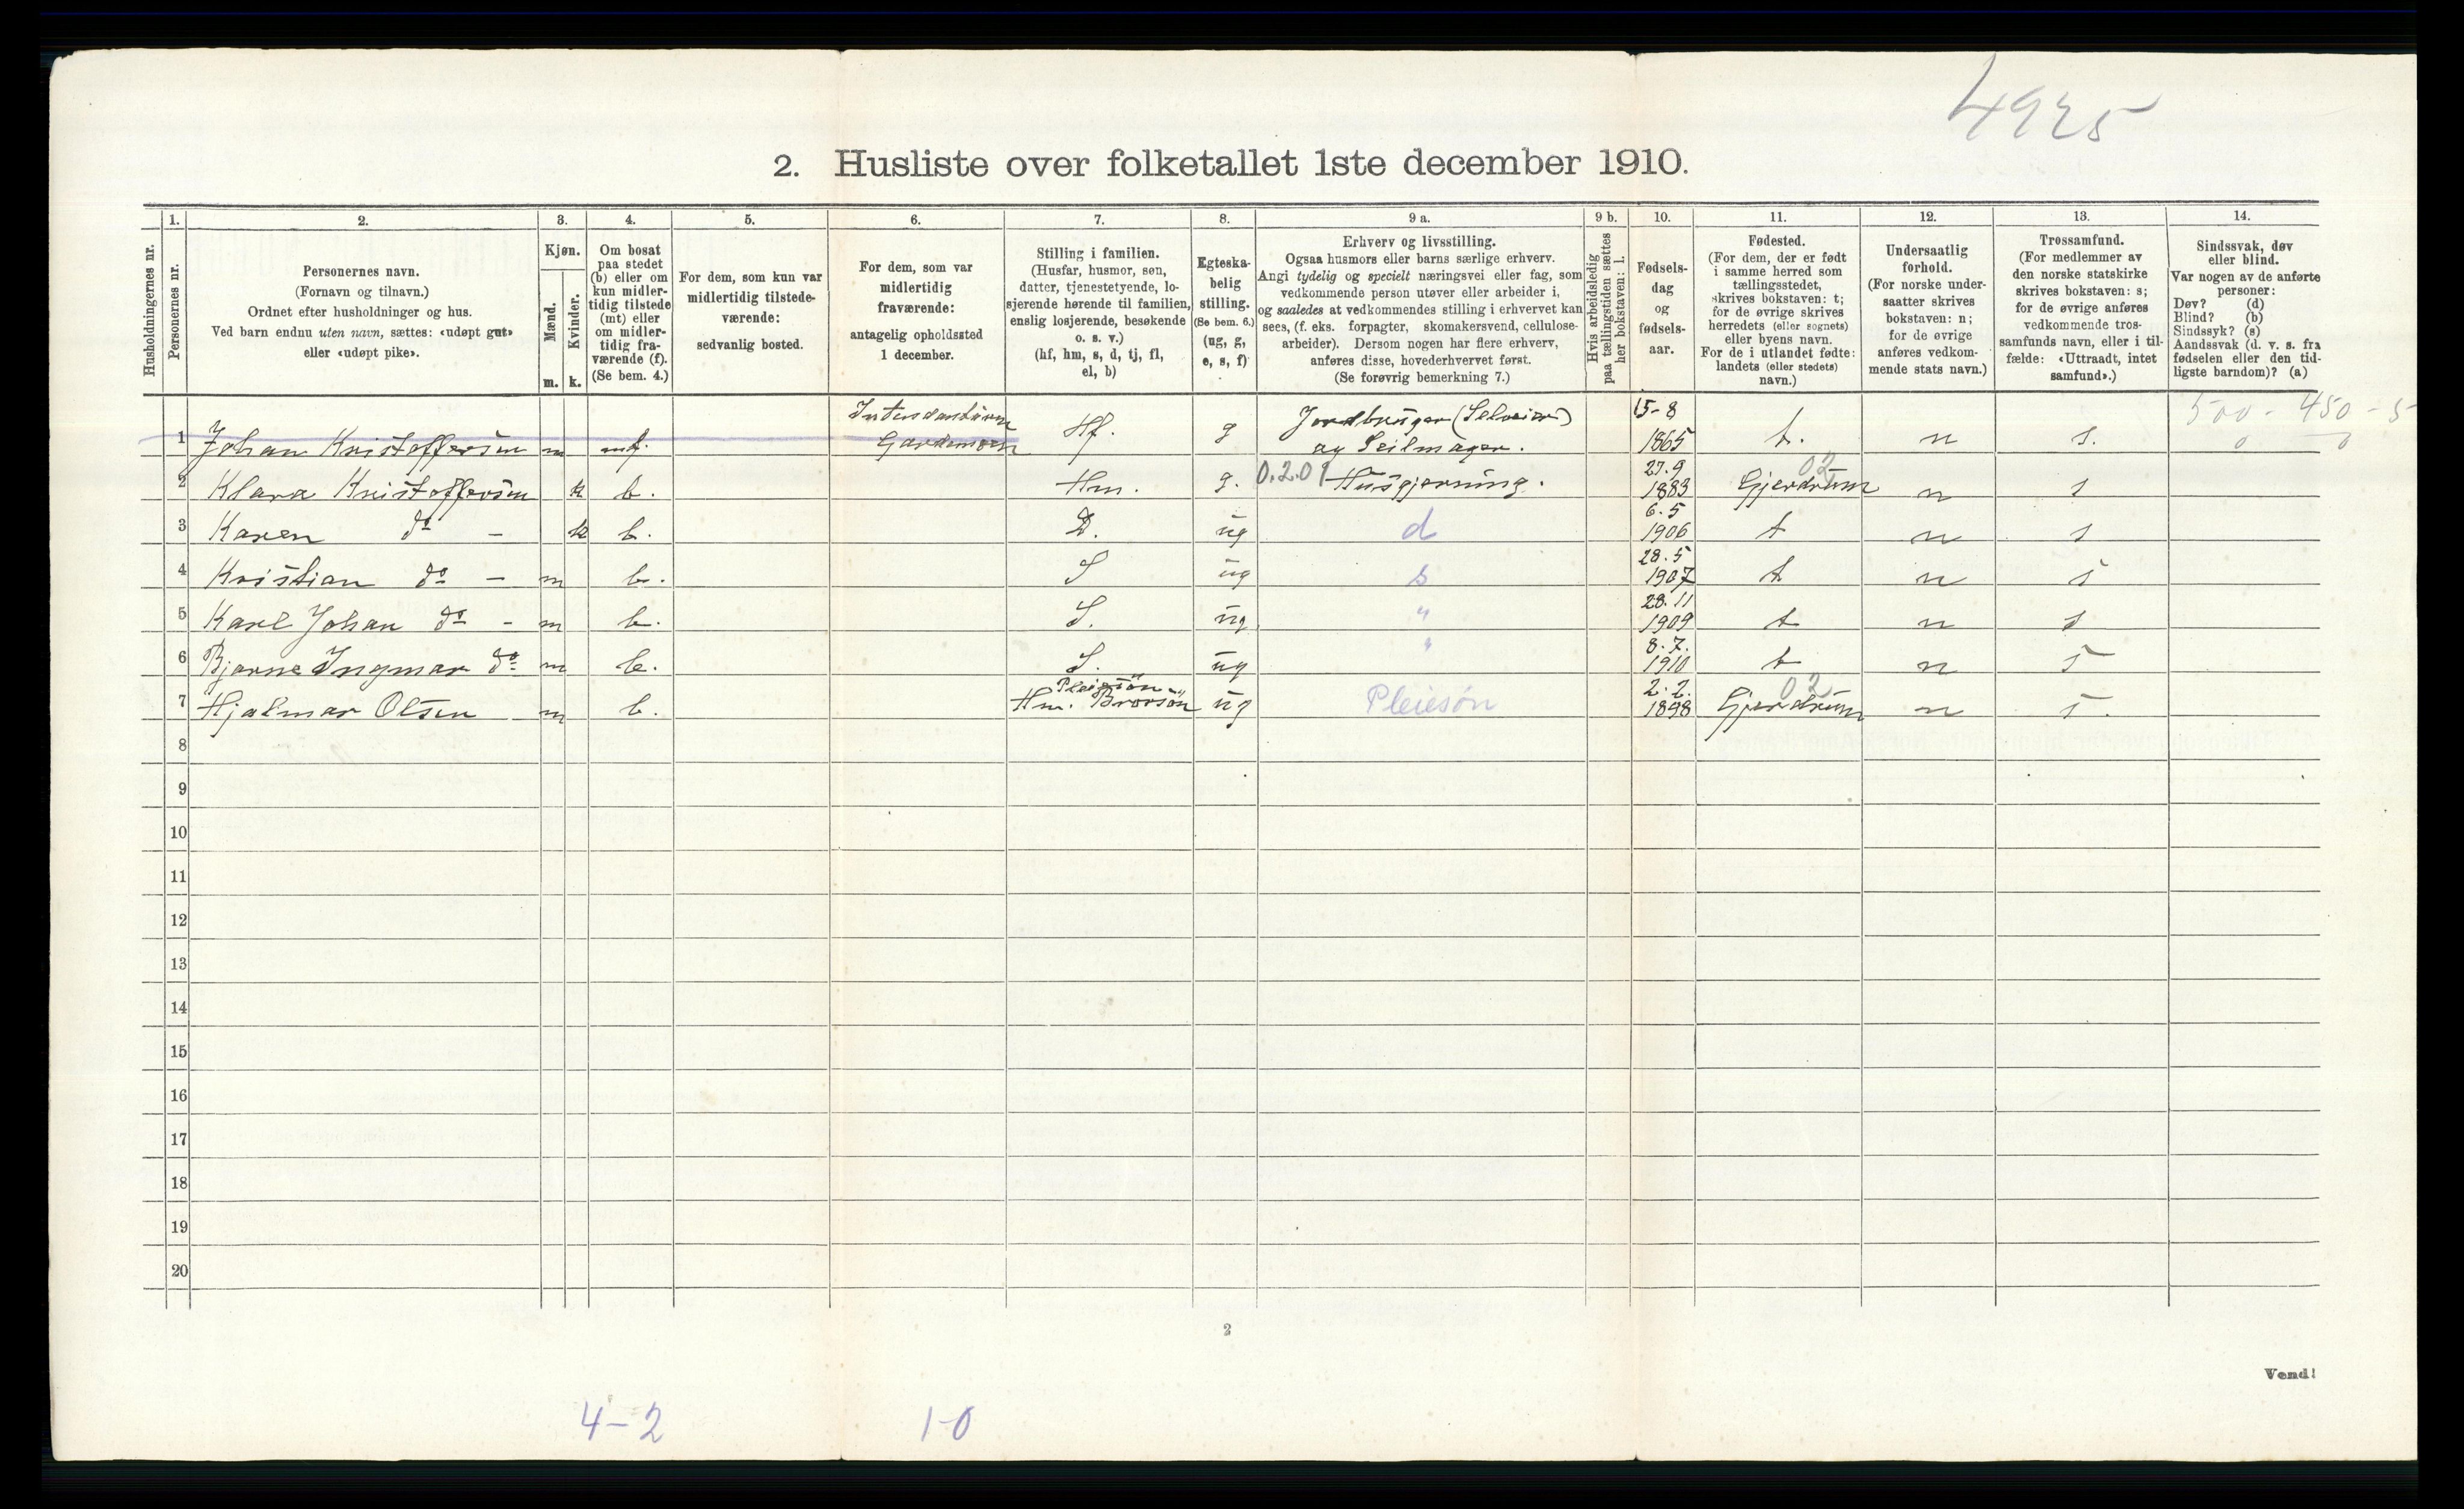 4925
2. Husliste over folketallet 1ste december 1910.
Husholdningernes nr.
1. Personernes nr.
2. Personernes navn.
(Fornavn og tilnavn.)
Ordnet efter husholdninger og hus.
Ved barn endnu uten navn, sættes: «udøpt gut»
eller «udøpt pike».
3. Kjøn.
Mænd. m.
Kvinder. k.
4. Om bosat
paa stedet
(b) eller om
kun midler-
tidig tilstede
(mt) eller
om midler-
tidig fra-
værende (f).
(Se bem. 4.)
5. For dem, som kun var
midlertidig tilstede-
værende:
sedvanlig bosted.
6. For dem, som var
midlertidig
fraværende:
antagelig opholdssted
1 december.
7. Stilling i familien.
(Husfar, husmor, søn,
datter, tjenestetyende, lo-
sjerende hørende til familien,
enslig losjerende, besøkende
o. s. v.)
(hf, hm, s, d, tj, fl,
el, b)
8. Egteska-
belig
stilling.
(Se bem. 6.)
(ug, g,
e, s, f)
9 a. Erhverv og livsstilling.
Ogsaa husmors eller barns særlige erhverv.
Angi tydelig og specielt næringsvei eller fag, som
vedkommende person utøver eller arbeider i,
og saaledes at vedkommendes stilling i erhvervet kan
sees, (f. eks. forpagter, skomakersvend, cellulose-
arbeider). Dersom nogen har flere erhverv,
anføres disse, hovederhvervet først.
(Se forøvrig bemerkning 7.)
9 b. Hvis arbeidsledig
paa tællingstiden sættes
her bokstaven: l.
10. Fødsels-
dag
og
fødsels-
aar.
11. Fødested.
(For dem, der er født
i samme herred som
tællingsstedet,
skrives bokstaven: t;
for de øvrige skrives
herredets (eller sognets)
eller byens navn.
For de i utlandet fødte:
landets (eller stedets)
navn.)
12. Undersaatlig
forhold.
(For norske under-
saatter skrives
bokstaven: n;
for de øvrige
anføres vedkom-
mende stats navn.)
13. Trossamfund.
(For medlemmer av
den norske statskirke
skrives bokstaven: s;
for de øvrige anføres
vedkommende tros-
samfunds navn, eller i til-
fælde: «Uttraadt, intet
samfund».)
14. Sindssvak, døv
eller blind.
Var nogen av de anførte
personer:
Døv? (d)
Blind? (b)
Sindssyk? (s)
Aandssvak (d. v. s. fra
fødselen eller den tid-
ligste barndom)? (a)
500 - 450 - 5
0 0
1 Johan Kristoffersen m mf. Intendanturen Gardemoen Hf. g Jordbruger (Selveier) og Seilmager. 15-8 1865 t. n s.
2 Klara Kristoffersen k b. Hm. g. 0.2.01 Husgjerning. 27.9 1883 Gjerdrum 02 n s
3 Karen do - k b. D. ug d 6.5 1906 t n s
4 Kristian do - m b. S ug s 28.5 1907 t n s
5 Karl Johan do - m b. S. ug " 28.11 1909 t n s
6 Bjarne Ingmar do m b. S. ug " 8.7. 1910 t n s
7 Hjalmar Olsen m b. Pleiesøn Hm. Brorsøn ug Pleiesøn 2.2. 1898 Gjerdrum 02 n s.
8
9
10
11
12
13
14
15
16
17
18
19
20
2
Vend!
4-2 1-0